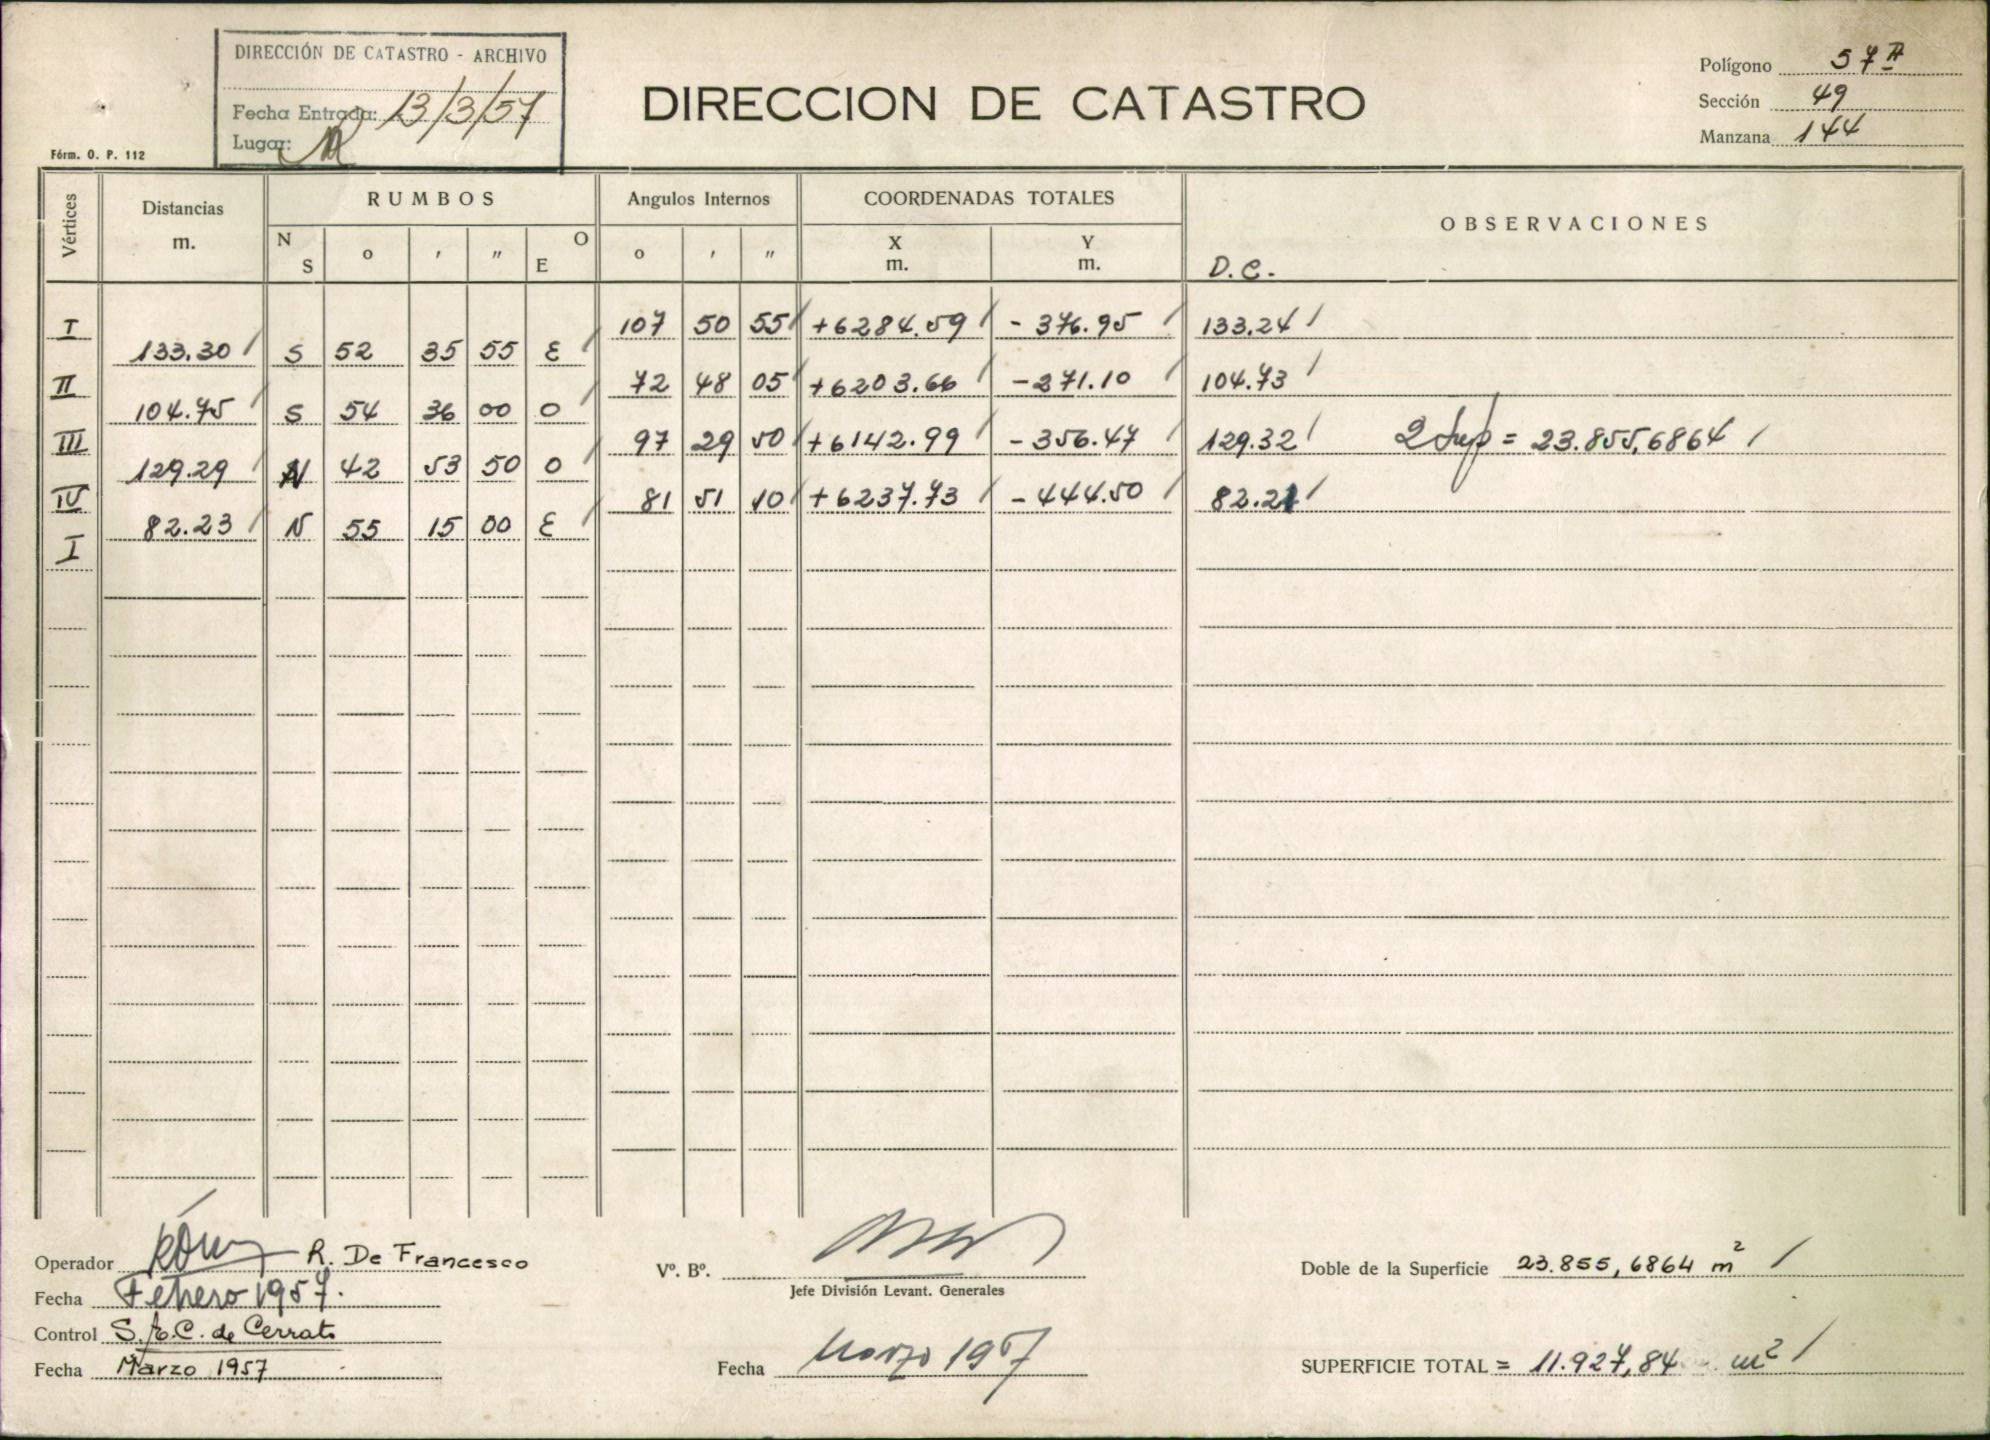 DIRECCIÓN DE CATASTRO - ARCHIVO
Fecha Entrada: 13/3/57
Lugar:
Fórm. O. P. 112
DIRECCION DE CATASTRO
Polígono 57 A
Sección 49
Manzana 144
Vértices Distancias m. RUMBOS Angulos Internos COORDENADAS TOTALES OBSERVACIONES
N S ° ' " O E ° ' " X m. Y m. D. C.
I 107 50 55 +6284.59 - 376.95 133.24
133.30 S 52 35 55 E
II 72 48 05 +6203.66 -271.10 104.73
104.75 S 54 36 00 O
III 97 29 50 +6142.99 - 356.47 129.32 2 Sup = 23.855,6864
129.29 N 42 53 50 O
IV 81 51 10 +6237.73 - 444.50 82.21
82.23 N 55 15 00 E
I
Operador R. De Francesco
Fecha Febrero 1957.
Control S. E. C. de Cerrato
Fecha Marzo 1957
Vº. Bº.
Jefe División Levant. Generales
Fecha Marzo 1957
Doble de la Superficie 23.855,6864 m²
SUPERFICIE TOTAL = 11.927,84 m²